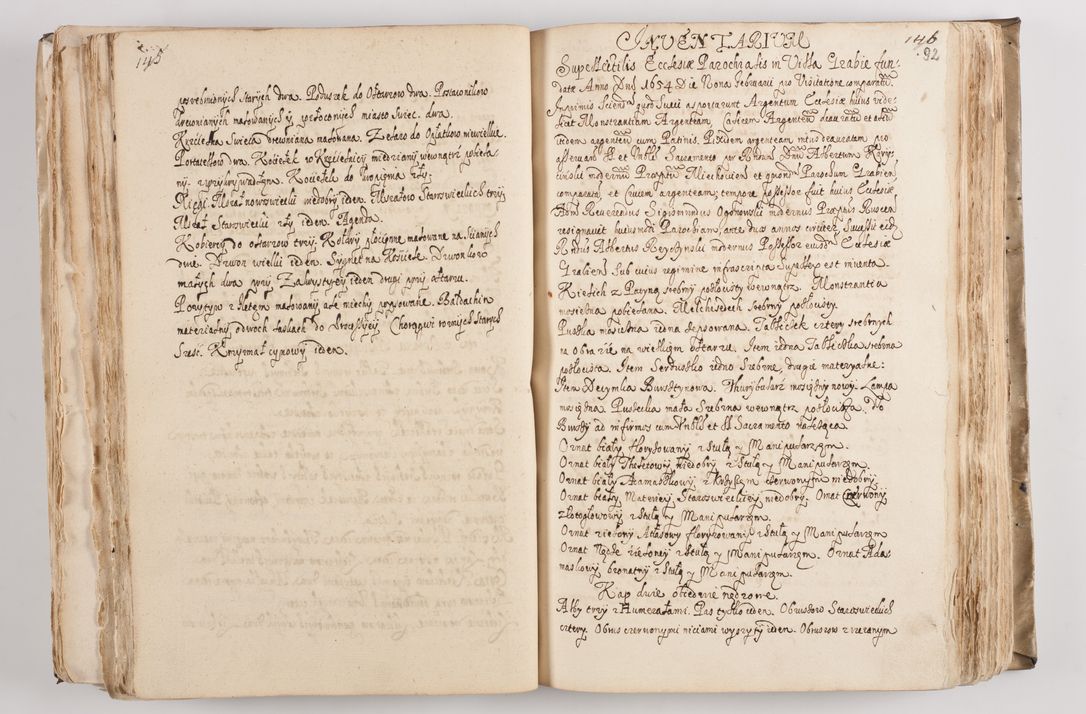 145
posrebrnionych starych dwa. Poduszek do Ołtarzow dwa. Postawnikow
drewnianych malowanych y złoconych miasto Swiec. dwa.
Swieta drewniana malowana. Zelazo do Opłatkow niewielkie.
dwa. Kociełek w Krzcielnicy miedziany wewnątrz
Kociełek do
Mszał iden. Mszałow Staroswieckich trzy
Mszał Staroswiecki iden. Agenda.
Kobiercy do ołtarzow trzy. malowane na scianach
dwie. Dzwon wielki ieden. Sygnet na Kościele. Dzwonkow
małych dwa przy ieden drugi przy ołtarzu.
Pozytyw malowany ale miechy popsowane. Baldachin
materialny odwoch laskach do Processyey. Choragwi roznych Starych
Szesc. Korzymał cynowy ieden.
146
92
INVENTARIUM
Supellectilis Ecclesiæ Parochialis in Villa Grabie fun:
data Anno Dni 1654 Die Nona Februarii pro Visitatione
Inprimis Sciend quod Sueci asportarunt Argentum Ecclesiæ huius vide
licet Monstrantiam Argenteam, Calicem Argenteum deauratum et
itidem argenteum cum Patinis, Pixidem argenteam intus deauratam pro
asservando Sacramento per Albertum
modernum Præptum Miechovien et Parochum Grabien
comparatam et Crucem argenteam, tempore possessor fuit huius Ecclesiæ
Adm Reverendus Sigismundus Ogonowski modernus Præptus
resignavit huiusmodi Parochiam, ante duos annos
Albertus modernus Possessor eiusd Ecclesiæ
Grabien Sub cuius regimine infrascripta Supellex est inventa.
Kielich z Patyną srebrny pozłocisty wewnątrz. Monstrantia
mosiężna pobielana. Melchisedech srebrny pozłocisty.
Puszka mosiężna iedna zepsowana. Tabliczek cztery srebrnych
na obrazie na wielkim ołtarzu. Item iedna Tabliczka srebrna
pozłocista. Item Serduszko iedno Srebrne, drugie materyalne:
Item Decymka Bursztynowa. Thurybularz mosiężny nowy. Lampa
mosiężna Puszecka mała Srebrna wewnątrz pozłocista, do
Bursy ad infirmos cum Sacramento należąca
Ornat biały florysowany z Stułą y Manipularzem.
Ornat biały niedobry z Stułą y Manipularzem.
Ornat biały Adamaszkowy z Krzyżem czerwonym niedobry.
Ornat biały Materiey Staroswieckiey niedobry. Ornat Czerwony
złotogłowowy z Stułą y Manipularzem.
Ornat zielony Atłasowy florysowany z Stułą y Manipularzem
Ornat zielony z Stułą y Manipularzem. Ornat Ada
maszkowy brunatny z Stułą y Manipularzem.
Kap dwie obiedwie nędzowe.
Alby trzy z Humerałami. Pas tylko ieden. Obrusow Staroswieckich
cztery. Obrus czerwonymi niciami wyszyty ieden. Obrusow